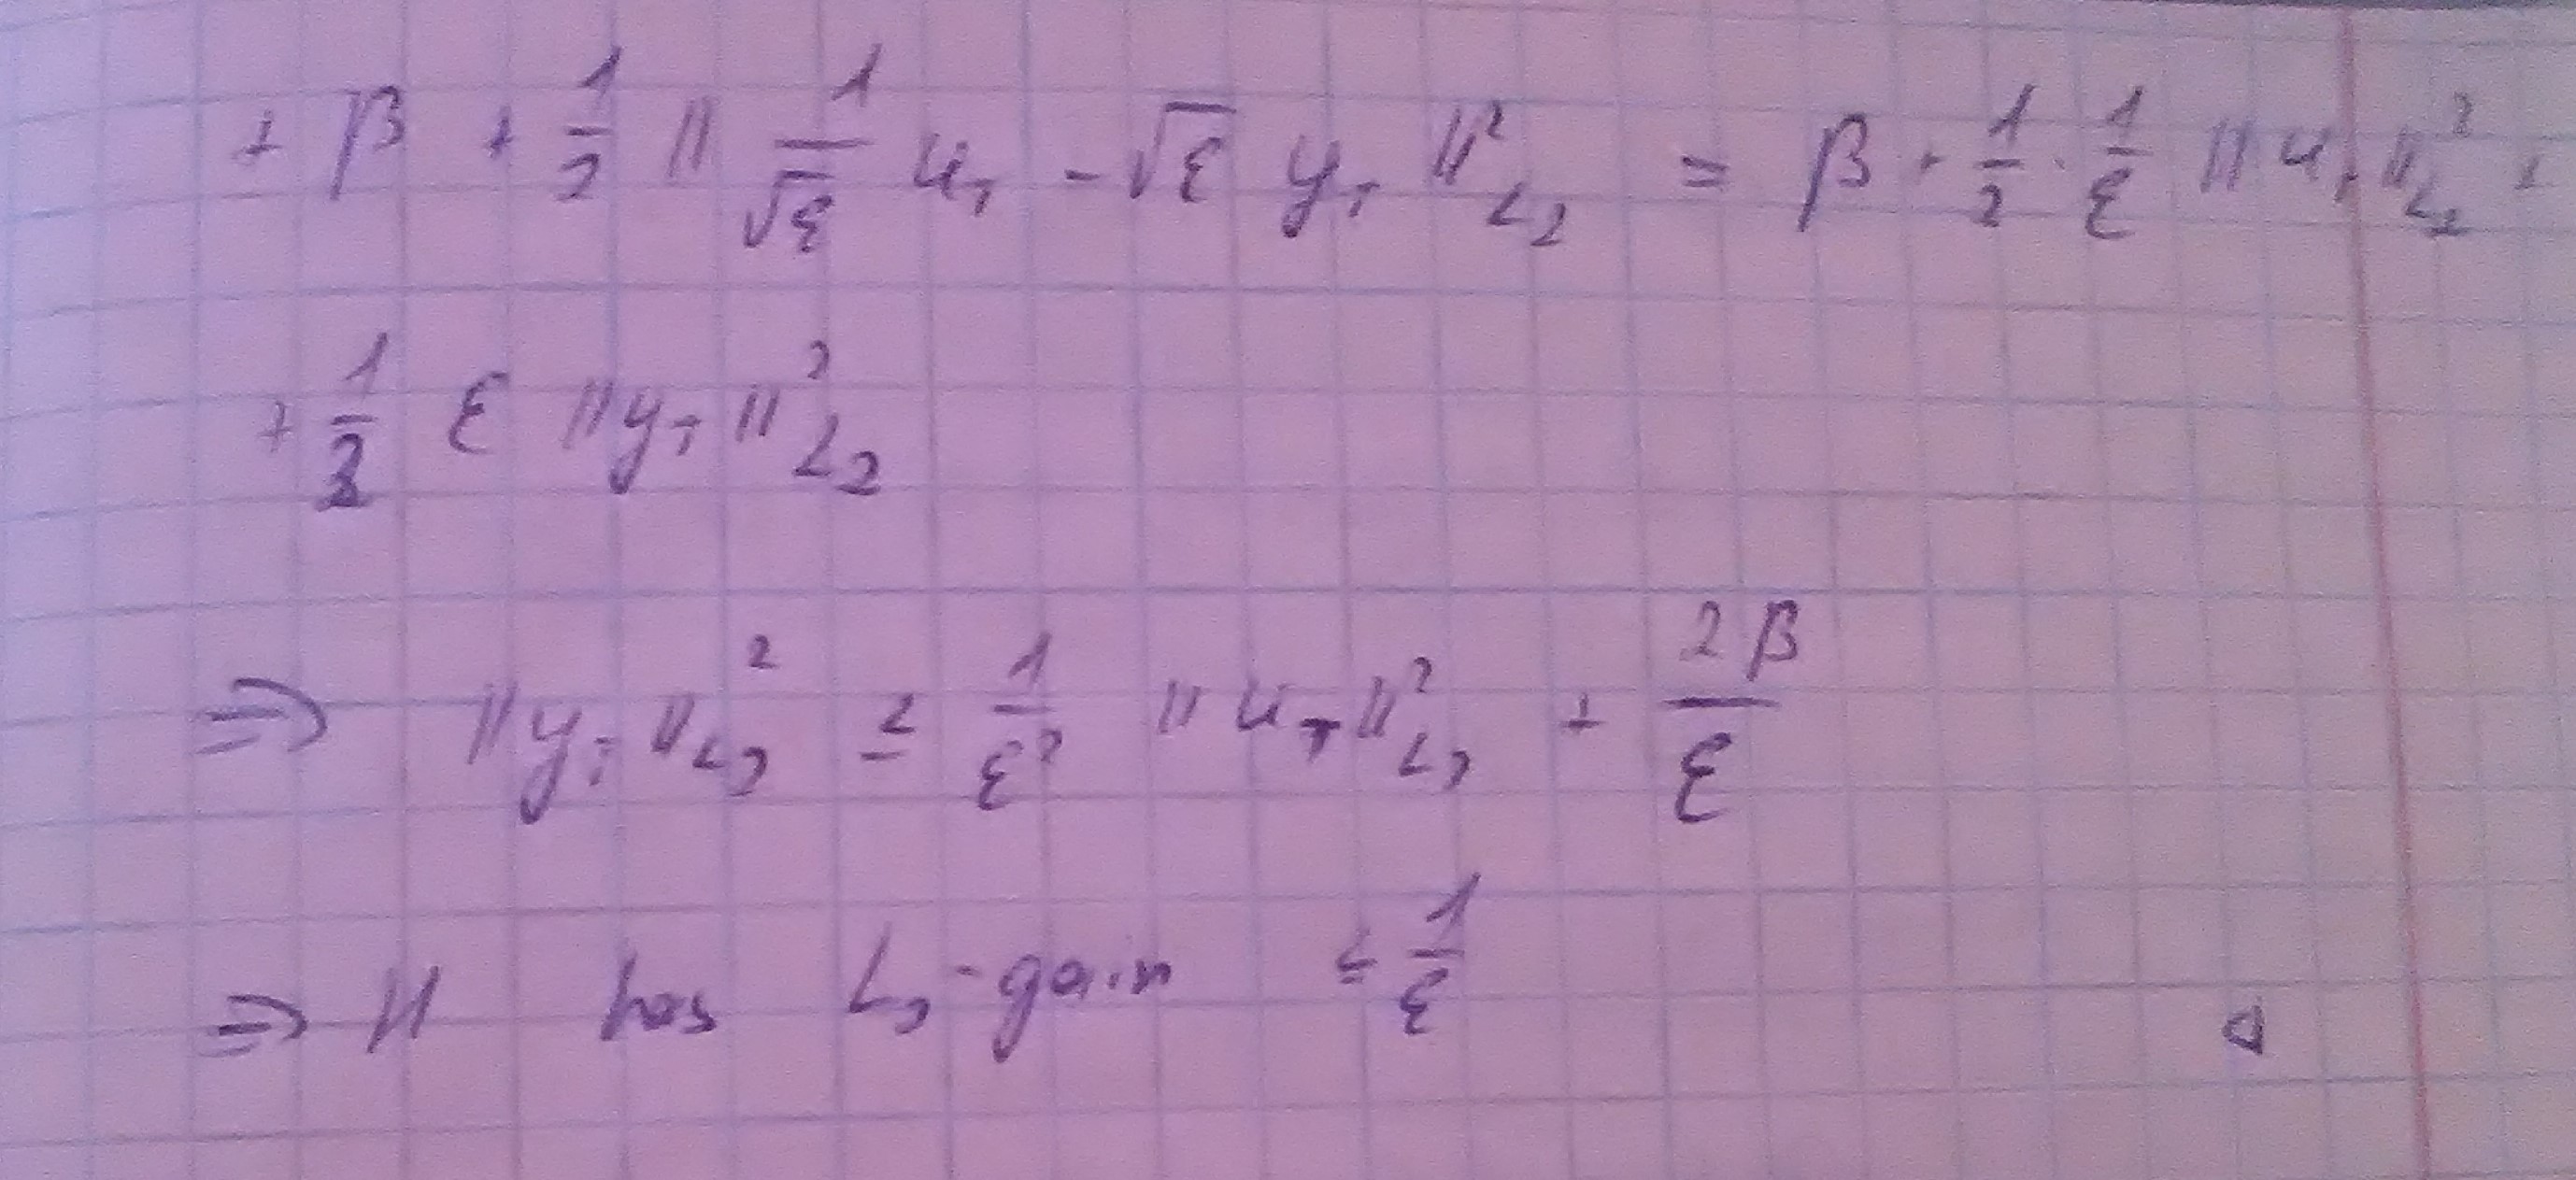 + β + 1/2 || 1/√ε u_T - √ε y_T ||²_L₂ = β + 1/2 · 1/ε || u_T ||²_L₂ +
+ 1/2 ε || y_T ||²_L₂
⇒ || y_T ||²_L₂ ≤ 1/ε² || u_T ||²_L₂ + 2β/ε
⇒ H has L₂-gain ≤ 1/ε □